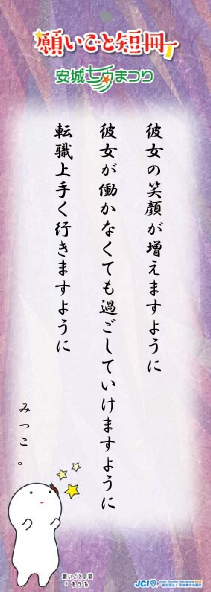 願いごと短冊
安城七夕まつり
彼女の笑顔が増えますように
彼女が働かなくても過ごしていけますように
転職上手く行きますように
みっこ。
願いごと短冊
JCI